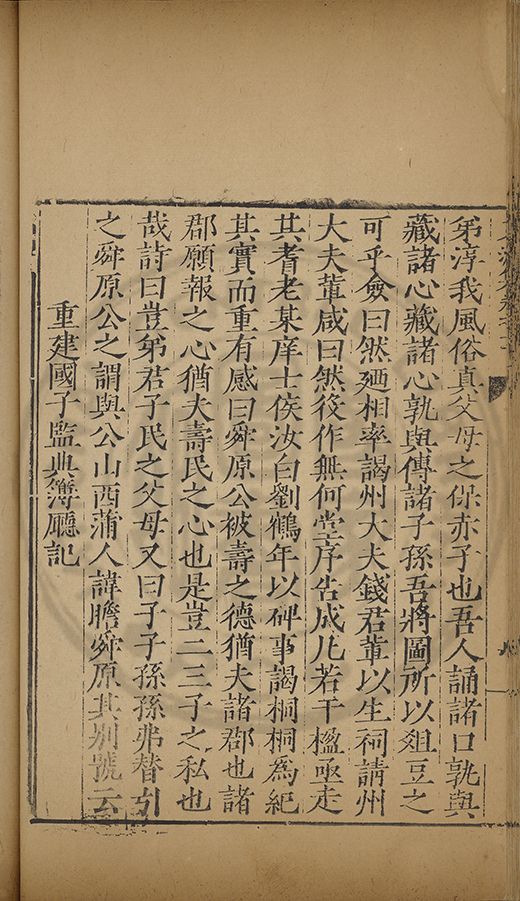 弟淳我風俗真父母之保赤子也吾人誦諸口孰與
藏諸心藏諸心孰與傳諸子孫吾將圖所以俎豆之
可乎僉曰然廼相率謁州大夫錢君輩以生祠請州
大夫輩咸曰然役作無何堂序告成凡若干楹亟走
其耆老某庠士侯汝白劉鶴年以碑事謁桐桐為紀
其實而重有感曰舜原公被壽之德猶夫諸郡也諸
郡願報之心猶夫壽民之心也是豈二三子之私也
哉詩曰豈弟君子民之父母又曰子子孫孫弗替引
之舜原公之謂與公山西蒲人諱瞻舜原其別號云
重建國子監典簿廳記